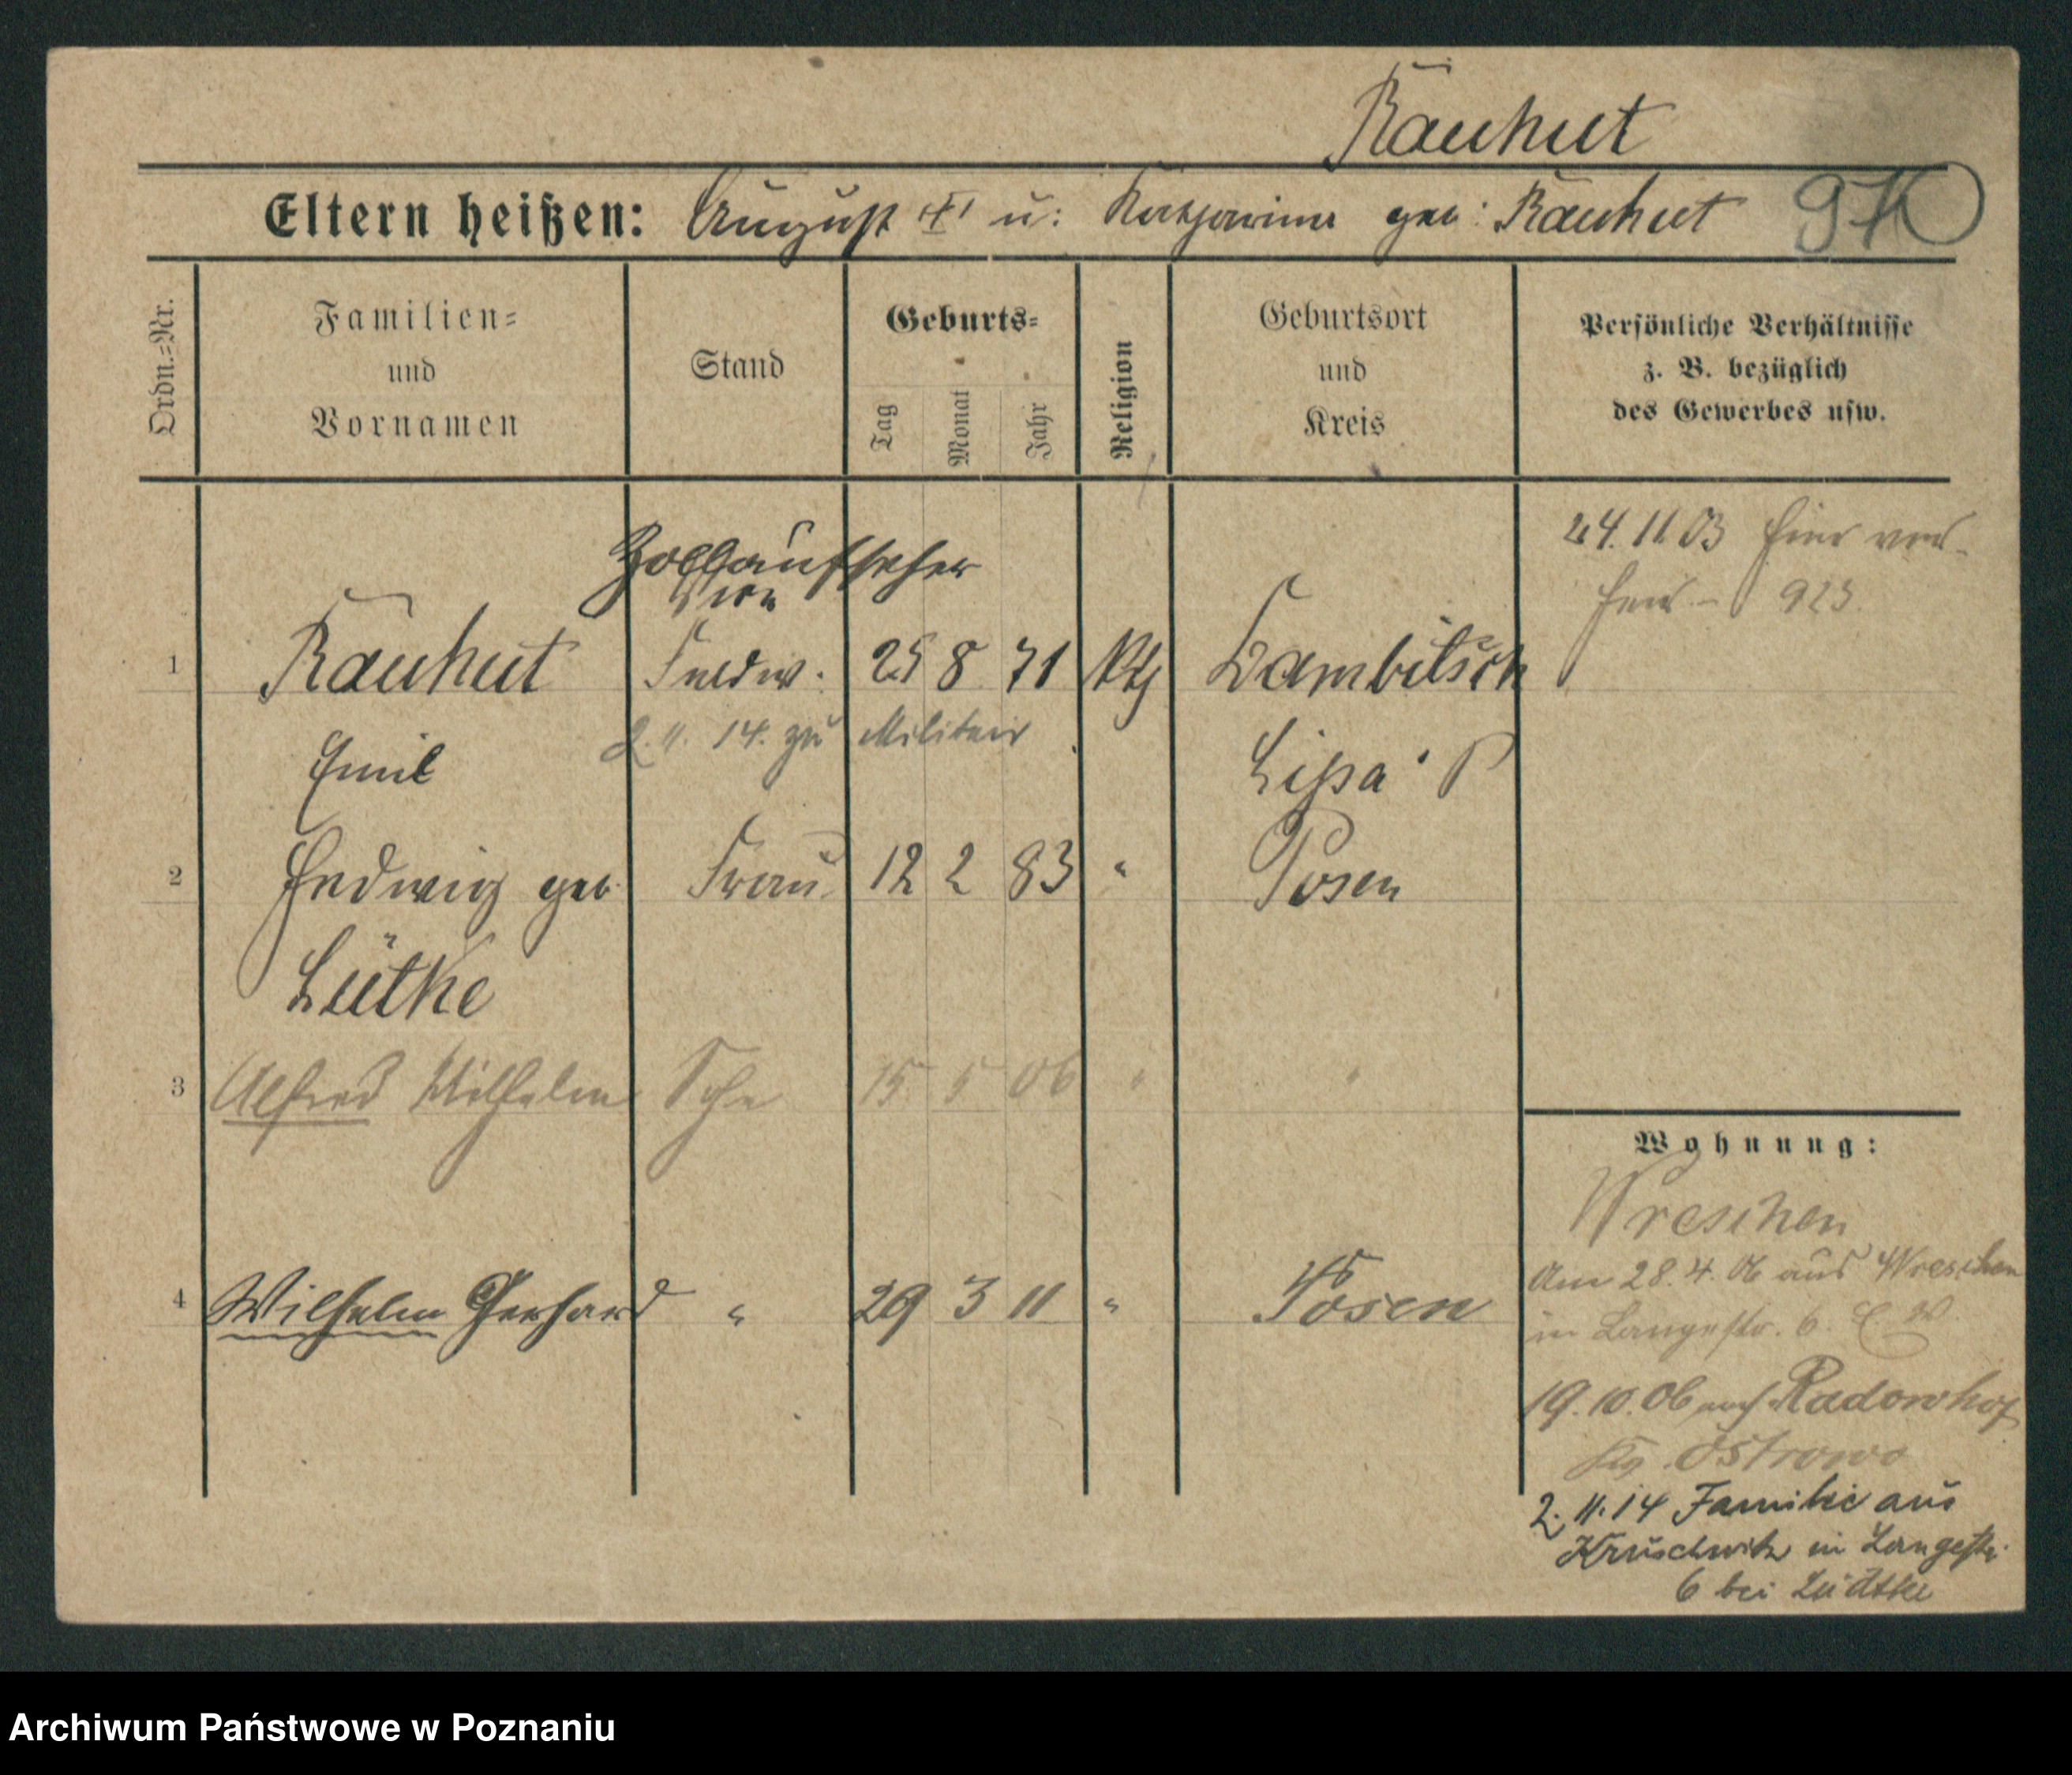 Rauhut
Eltern heißen: August † u: Katharina geb: Rauhut
Ordn.=Nr.
Familien=
und
Vornamen
Stand
Geburts=
Tag
Monat
Jahr
Religion
Geburtsort
und
Kreis
Persönliche Verhältnisse
z. B. bezüglich
des Gewerbes usw.
24.11.03 hier ver-
heir. 923.
Zollaufseher
1 Rauhut Feldw. 25 8 71 kth Lambitsch
2. 11. 14. zu Militair
Emil Lissa P
2 Hedwig geb. Frau 12 2 83 " Posen
Lütke
3 Alfred Wilhelm Sohn 15 5 06 " "
4 Wilhelm Gerhard " 29 3 11 " Posen
Wohnung:
Wreschen
Am 28.4.06 aus Wreschen
in Langestr. 6.
19.10.06 nach Radowhof
Ostrowo
2. 11. 14 Familie aus
Kruschwitz in Langestr.
6 bei Lüdtke
Archiwum Państwowe w Poznaniu